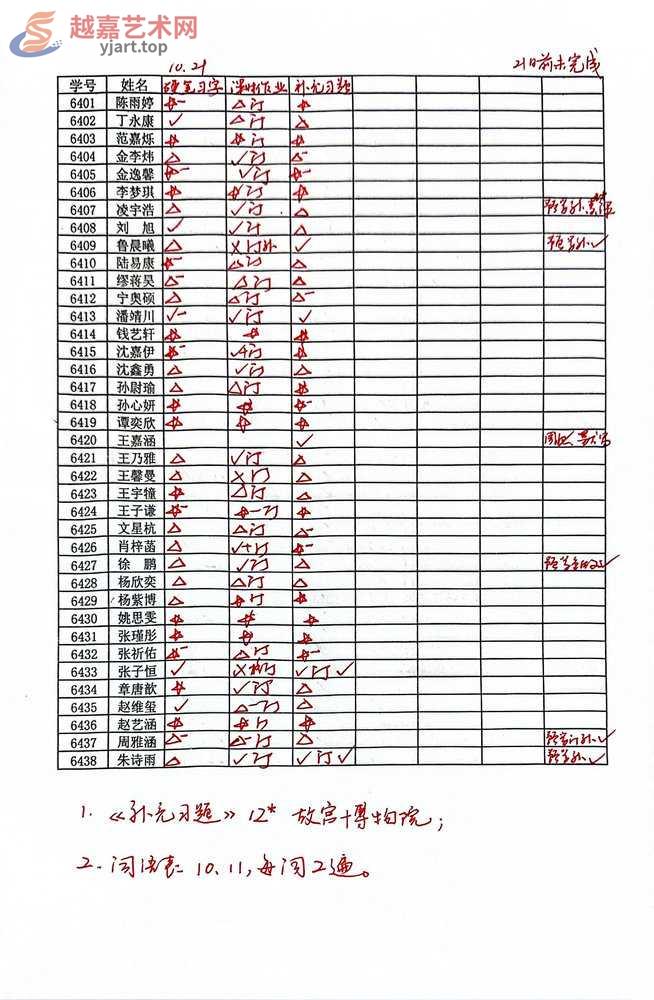 越嘉艺术网
yjart.top
10.21 21日前未完成
学号 姓名 硬笔习字 课堂作业 补充习题
6401 陈雨婷 ☆- △订 ☆
6402 丁永康 ✓ △订 △
6403 范嘉烁 ☆ ☆订 ☆
6404 金李炜 △ ✓订 △-
6405 金逸馨 ☆- ✓订 ☆-
6406 李梦琪 ☆ ☆订 ☆
6407 凌宇浩 △ ✓订 △
6408 刘旭 ✓ ✓订 △
6409 鲁晨曦 △ ×订补 ✓
6410 陆易康 ☆- △订 △
6411 缪蒋昊 △- △订 △
6412 宁奥硕 △ △订 △-
6413 潘靖川 ✓- ✓订 ✓
6414 钱艺轩 ☆ ☆ ☆
6415 沈嘉伊 ☆- ✓+订 ☆
6416 沈鑫勇 △ ✓订 △
6417 孙尉瑜 △ △订 ☆
6418 孙心妍 ☆ ☆ ☆-
6419 谭奕欣 ☆ ☆ ☆
6420 王嘉涵 ✓
6421 王乃雅 △ ✓订 △
6422 王馨曼 △ ×订 △
6423 王宇犝 ☆ △订 △
6424 王子谦 ☆- ☆-订 ☆
6425 文星杭 △ △订 △-
6426 肖梓菡 △ ✓+订 ☆-
6427 徐鹏 △ ✓订 △
6428 杨欣奕 △ △订 △
6429 杨紫博 ☆ ☆订 ☆
6430 姚思雯 ☆ ☆ ☆
6431 张瑾彤 ☆ ☆ ☆
6432 张祈佑 ☆- △订 ☆-
6433 张子恒 ✓ ×订 ✓订✓
6434 章唐歆 ☆ ✓订 △
6435 赵维玺 ✓ △-订 △
6436 赵艺涵 ☆ ☆订 ☆
6437 周雅涵 △- △-订 △
6438 朱诗雨 △ ✓订 ✓订✓
1. 《补充习题》12* 故宫博物院；
2. 词语表：10、11，每词2遍。